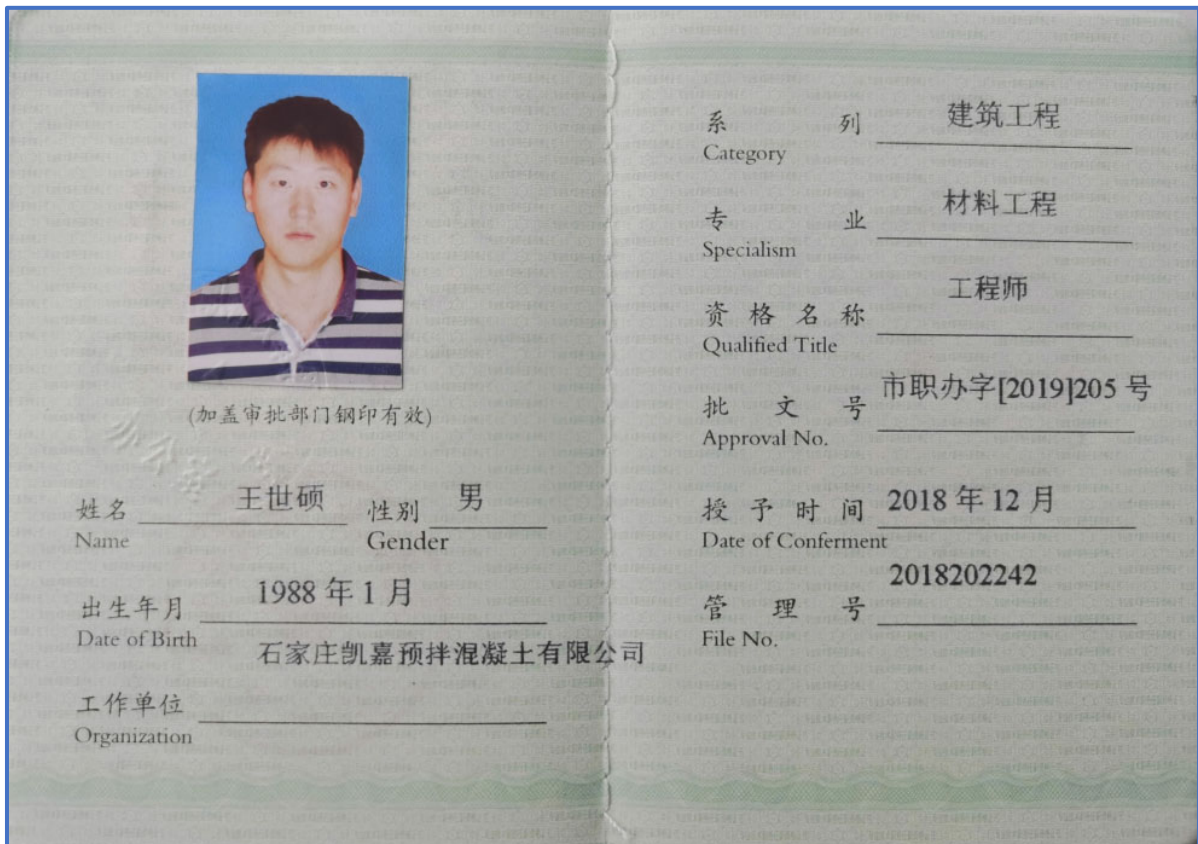 (加盖审批部门钢印有效)
姓名 王世硕 性别 男
Name Gender
出生年月 1988年1月
Date of Birth
石家庄凯嘉预拌混凝土有限公司
工作单位
Organization
系列 建筑工程
Category
专业 材料工程
Specialism
资格名称 工程师
Qualified Title
批文号 市职办字[2019]205号
Approval No.
授予时间 2018年12月
Date of Conferment
管理号 2018202242
File No.